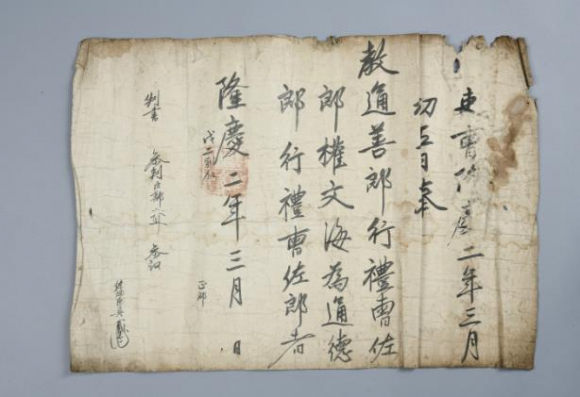 吏曹隆慶二年三月
初五日奉
教通善郎行禮曹佐
郎權文海為通德
郎行禮曹佐郎者
隆慶二年三月 日
正郎
判書 參判 參議